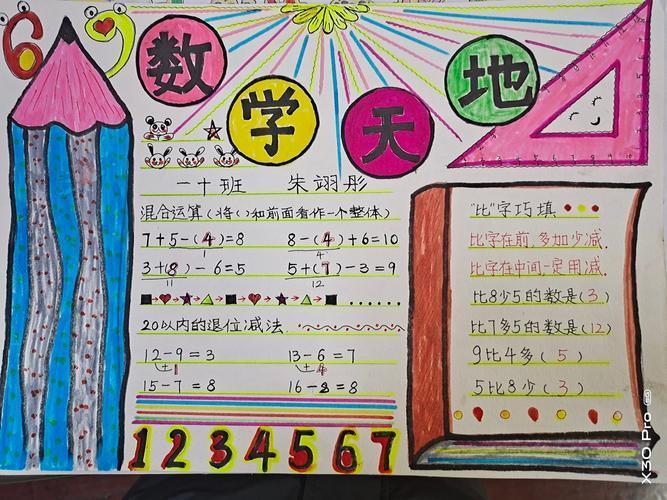 69
数学天地
一十班 朱翊彤
混合运算(将()和前面看作一个整体)
7+5-(4)=8 8-(4)+6=10
1 4
3+(8)-6=5 5+(7)-3=9
11 12
20以内的退位减法
12-9=3 13-6=7
+1 +4
15-7=8 16-8=8
1234567
"比"字巧填
比字在前,多加少减.
比字在中间一定用减.
比8少5的数是(3)
比7多5的数是(12)
9比4多(5)
5比8少(3)
X30 Pro